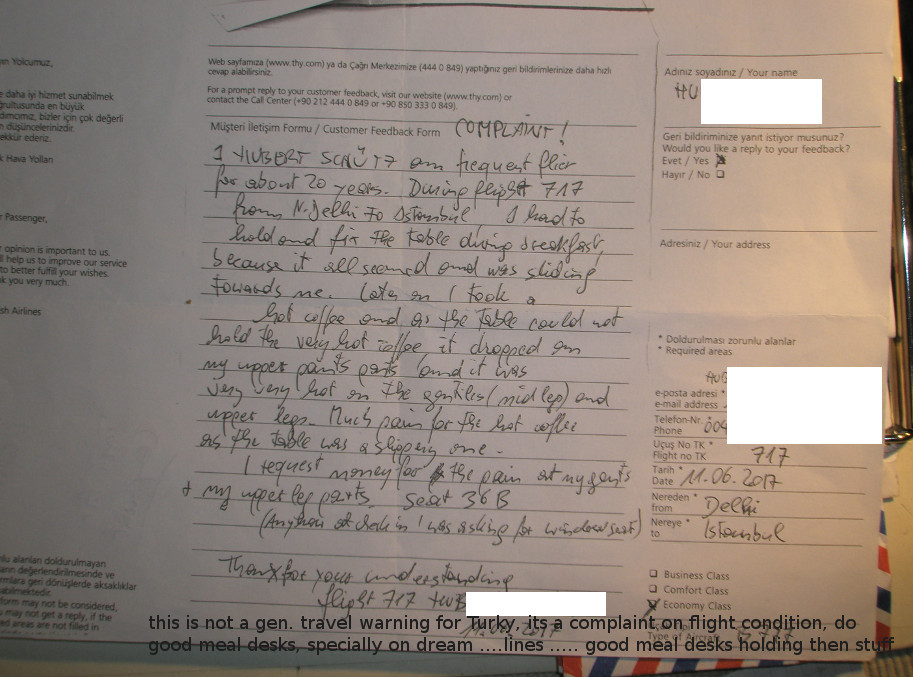 en Yolcumuz,
e daha iyi hizmet sunabilmek
ğrultusunda en büyük
dımcımız, bizler için çok değerli
n düşüncelerinizdir.
ekkür ederiz.
k Hava Yolları
r Passenger,
r opinion is important to us.
ll help us to improve our service
to better fulfill your wishes.
k you very much.
sh Airlines
nlu alanları doldurulmayan
arın değerlendirilmesinde ve
mlara geri dönüşlerde aksaklıklar
abilmektedir.
form may not be considered,
may not get a reply, if the
ed areas are not filled in
Web sayfamıza (www.thy.com) ya da Çağrı Merkezimize (444 0 849) yaptığınız geri bildirimlerinize daha hızlı
cevap alabilirsiniz.
For a prompt reply to your customer feedback, visit our website (www.thy.com) or
contact the Call Center (+90 212 444 0 849 or +90 850 333 0 849).
Müşteri İletişim Formu / Customer Feedback Form COMPLAINT!
I HUBERT SCHÜTZ am frequent flier
for about 20 years. During flight 717
from N. Delhi to Istanbul I had to
hold and fix the table during breakfast,
because it all seemed and was sliding
towards me. Later on I took a
hot coffee and as the table could not
hold the very hot coffee it dropped on
my upper pants parts and it was
very very hot on the genitles (mid leg) and
upper legs. Much pain for the hot coffee
as the table was a slippery one.
I request money for the pain at my genits
+ my upper leg parts. Seat 36B
(Anyhow at check in I was asking for window seat)
Thanx for your understanding
flight 717 HUB
this is not a gen. travel warning for Turky, its a complaint on flight condition, do
good meal desks, specially on dream ....lines ..... good meal desks holding then stuff
Adınız soyadınız / Your name
HU
Geri bildiriminize yanıt istiyor musunuz?
Would you like a reply to your feedback?
Evet / Yes
Hayır / No
Adresiniz / Your address
* Doldurulması zorunlu alanlar
* Required areas
HUB
e-posta adresi *
e-mail address
Telefon-Nr.
Phone 004
Uçuş No TK *
Flight no TK 717
Tarih *
Date 11.06.2017
Nereden *
from Delhi
Nereye *
to Istanbul
Business Class
Comfort Class
Economy Class
Type of Aircraft